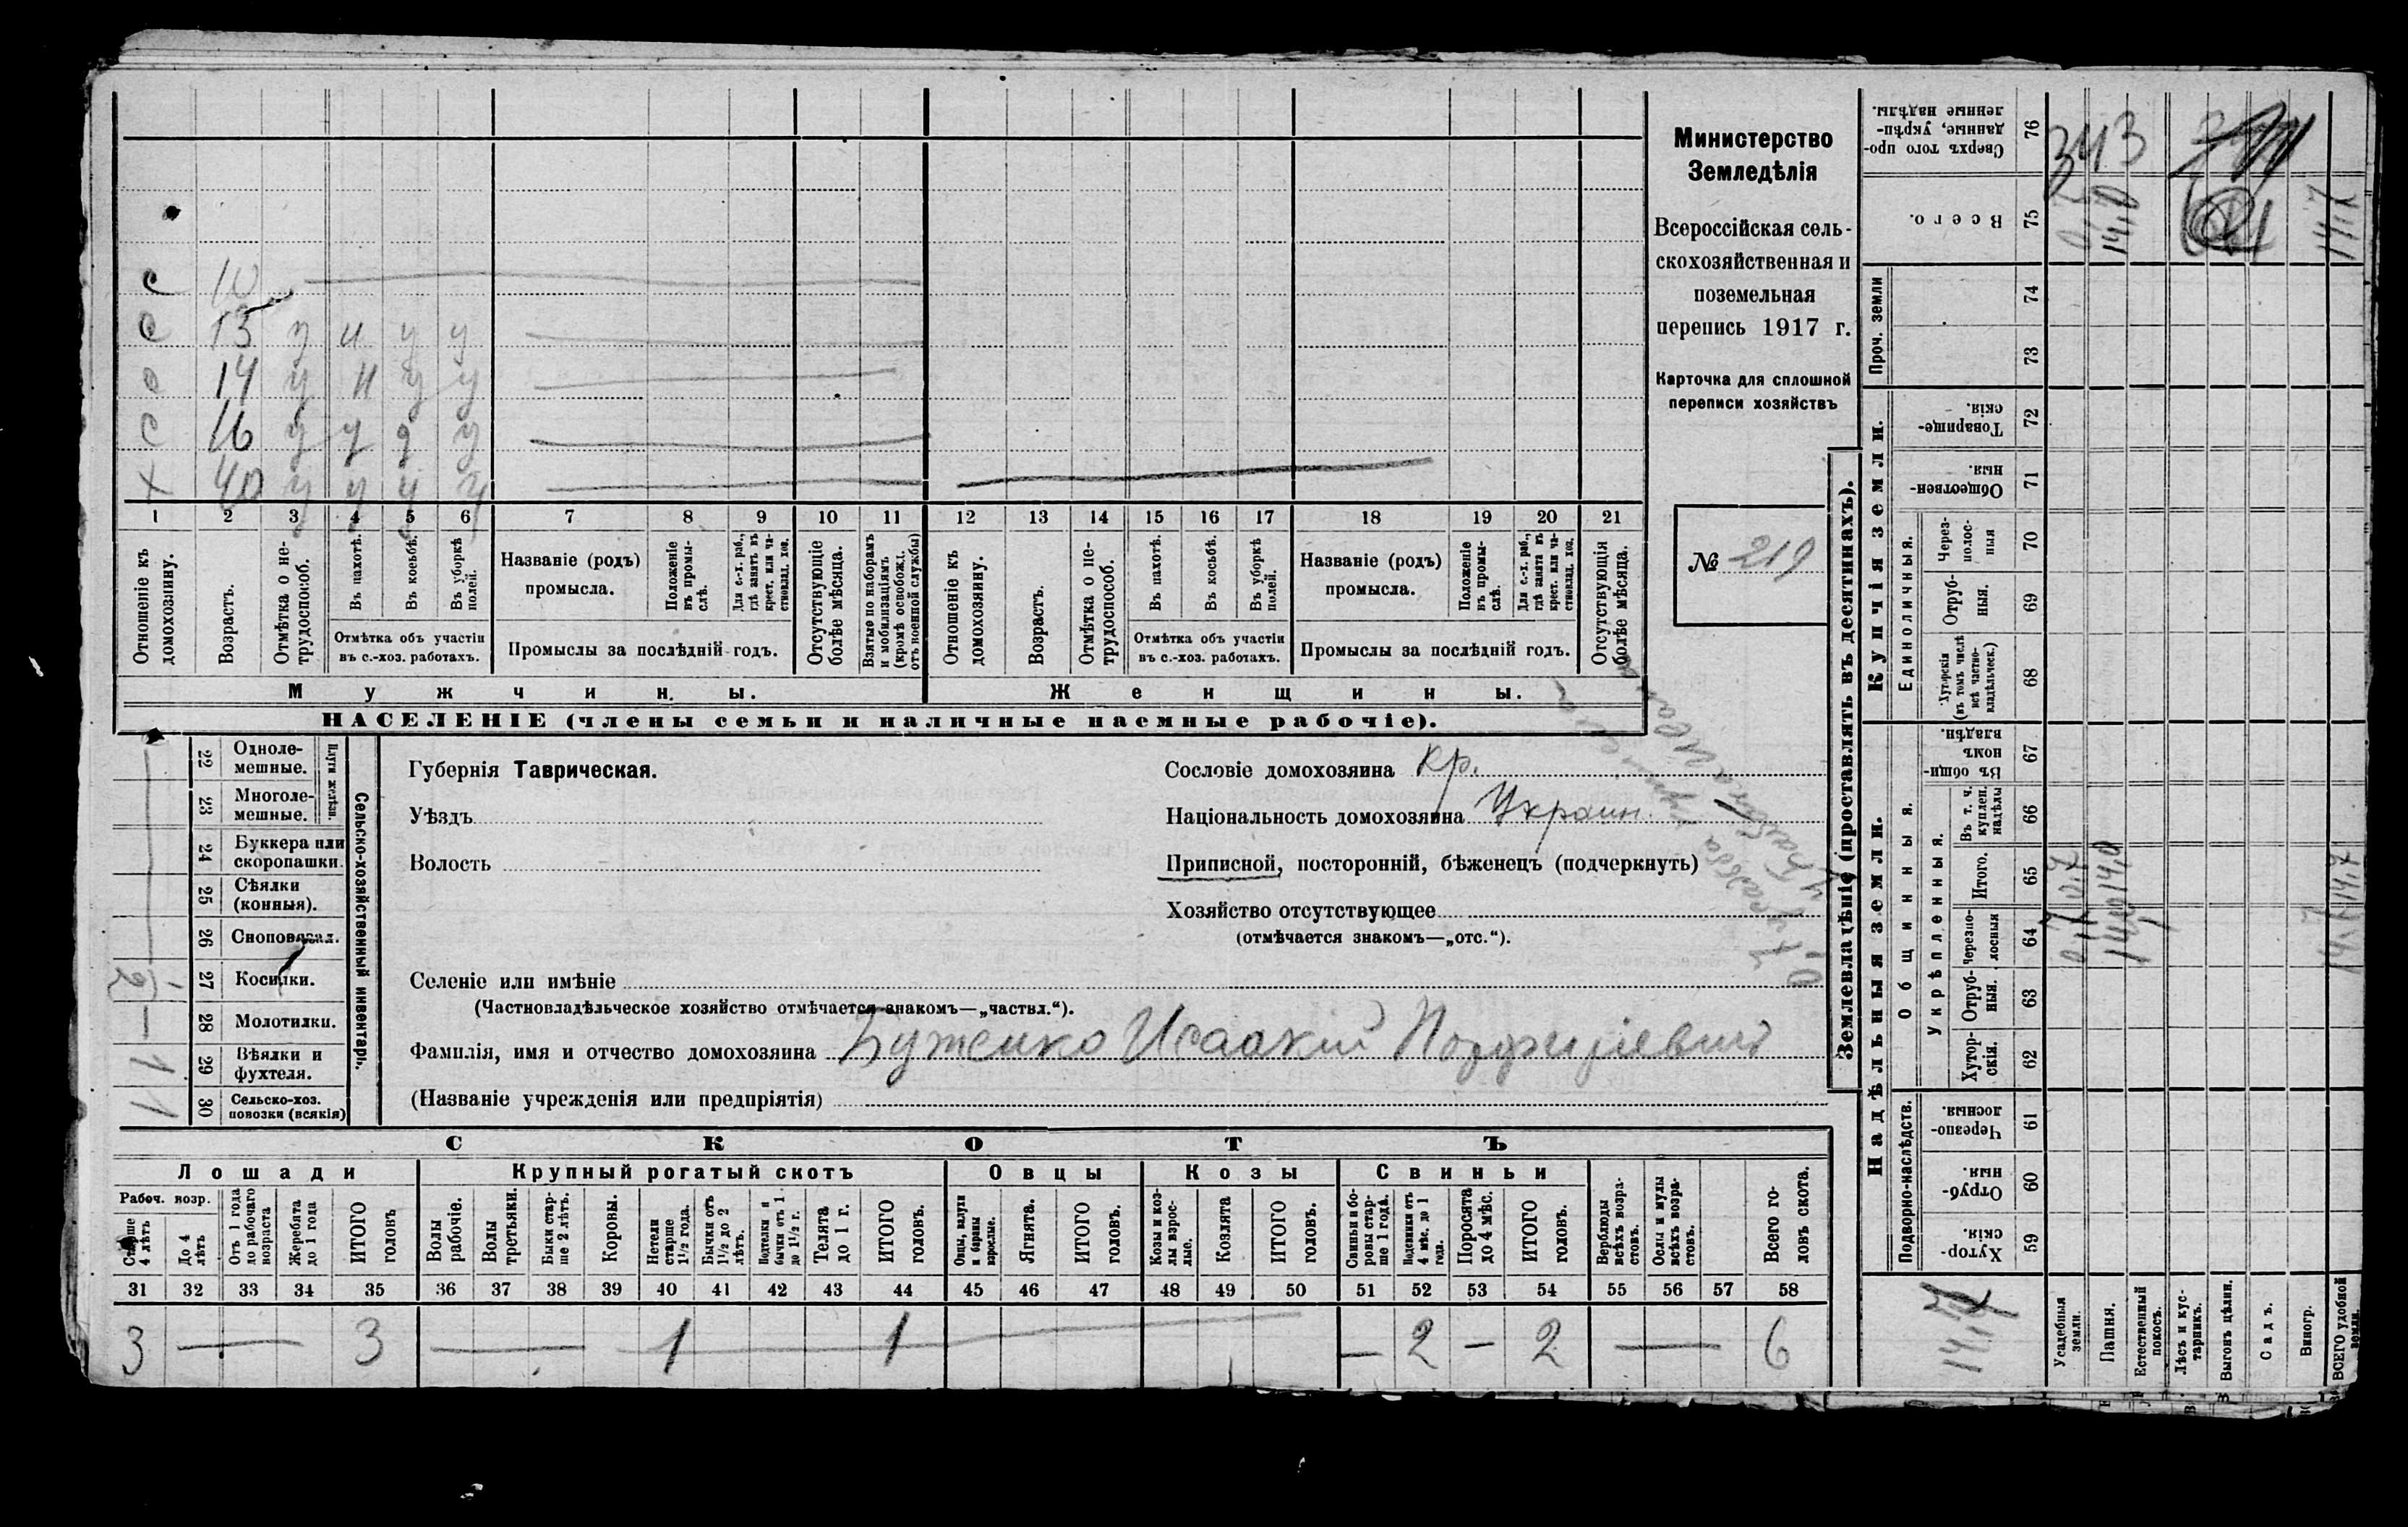 с 10
с 13 у н у у
с 14 у н у у
с 16 у у у у
х 40 у у у у
1 2 3 4 5 6 7 8 9 10 11 12 13 14 15 16 17 18 19 20 21
Отношеніе къ домохозяину.
Возрастъ.
Отмѣтка о не-
трудоспособ.
Въ пахотѣ.
Въ косьбѣ.
Въ уборкѣ полей.
Отмѣтка объ участіи
въ с.-хоз. работахъ.
Названіе (родъ)
промысла.
Положеніе въ промы-
слѣ.
Для с.-х. раб., гдѣ занятъ въ крест. или ча-
стновлад. хоз.
Промыслы за послѣдній годъ.
Отсутствующіе болѣе мѣсяца.
Взятые по наборамъ и мобилизаціямъ (кромѣ освобожд. отъ военной службы)
Отношеніе къ домохозяину.
Возрастъ.
Отмѣтка о не-
трудоспособ.
Въ пахотѣ.
Въ косьбѣ.
Въ уборкѣ полей.
Отмѣтка объ участіи
въ с.-хоз. работахъ.
Названіе (родъ)
промысла.
Положеніе въ промы-
слѣ.
Для с.-х. раб., гдѣ занята въ крест. или ча-
стновлад. хоз.
Промыслы за послѣдній годъ.
Отсутствующія болѣе мѣсяца.
Мужчины.
Женщины.
НАСЕЛЕНІЕ (члены семьи и наличные наемные рабочіе).
Министерство
Земледѣлія
Всероссійская сель-
скохозяйственная и
поземельная
перепись 1917 г.
Карточка для сплошной
переписи хозяйствъ
№ 219
22 Одноле-
мешные.
23 Многоле-
мешные.
Плуги желѣзн.
24 Буккера или
скоропашки.
25 Сѣялки
(конныя).
26 Сноповязал.
27 Косилки.
28 Молотилки.
29 Вѣялки и
фухтеля.
30 Сельско-хоз.
повозки (всякія)
Сельско-хозяйственный инвентарь.
1 1
Губернія Таврическая.
Уѣздъ
Волость
Селеніе или имѣніе
(Частновладѣльческое хозяйство отмѣчается знакомъ—„частвл.“).
Фамилія, имя и отчество домохозяина Буженко Исаакій Порфиріевичъ
(Названіе учрежденія или предпріятія)
Сословіе домохозяина кр.
Національность домохозяина Украин.
Приписной, посторонній, бѣженецъ (подчеркнуть)
Хозяйство отсутствующее
(отмѣчается знакомъ—„отс.“).
СКОТЪ
Лошади
Крупный рогатый скотъ
Овцы
Козы
Свиньи
Рабоч. возр.
Старше 4 лѣтъ
До 4 лѣтъ
Отъ 1 года до рабочаго возраста
Жеребята до 1 года
ИТОГО головъ
Волы рабочіе.
Волы третьяки.
Быки стар-
ше 2 лѣтъ.
Коровы.
Нетели старше 1½ года.
Бычки отъ 1½ до 2 лѣтъ.
Подтелки и бычки отъ 1 до 1½ г.
Телята до 1 г.
ИТОГО головъ.
Овцы, валухи и бараны взрослые.
Ягнята.
ИТОГО головъ.
Козы и коз-
лы взрос-
лые.
Козлята
ИТОГО головъ.
Свиньи и бо-
ровы стар-
ше 1 года.
Подсвинки отъ 4 мѣс. до 1 года.
Поросята до 4 мѣс.
ИТОГО головъ.
Верблюды всѣхъ возра-
стовъ.
Ослы и мулы всѣхъ возра-
стовъ.
Всего го-
ловъ скота.
31 32 33 34 35 36 37 38 39 40 41 42 43 44 45 46 47 48 49 50 51 52 53 54 55 56 57 58
3 — 3 — 1 — 1 — — 2 — 2 — 6
Землевладѣніе (проставлять въ десятинахъ).
Купчія земли.
Надѣльныя земли.
Сверхъ того про-
данные, укрѣп-
ленные надѣлы. 76
343
Всего. 75
14,0 14,7
Проч. земли 74 73
Товарище-
скія. 72
Обществен-
ныя. 71
Единоличныя.
Через-
полос-
ныя 70
Отруб-
ныя. 69
Хуторскія (въ томъ числѣ всѣ частно-
владѣльческ.) 68
Общинныя.
Въ общи-
номъ
владѣн. 67
Укрѣпленныя.
Въ т. ч. куплен. надѣлы 66
Итого. 65
0,7 14,0 14,7
Черезпо-
лосныя 64
0,7 14,0 14,7
Отруб-
ныя. 63
Хутор-
скія. 62
Подворно-наслѣдств.
Черезпо-
лосныя. 61
Отруб-
ныя. 60
Хутор-
скія. 59
14,7
Усадебныя земли.
Пашня.
Естественный покосъ.
Лѣсъ и кус-
тарникъ.
Выгонъ цѣлин.
Садъ.
Виногр.
ВСЕГО удобной земли.